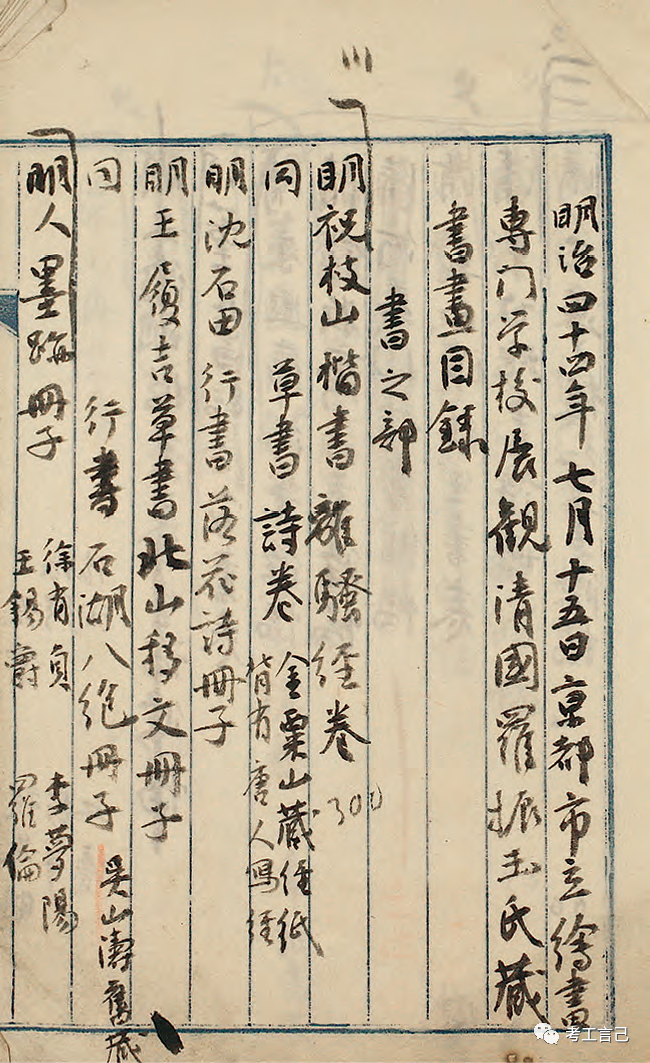 明治四十四年七月十五日京都市立繪畫
専门学校展観清國羅振玉氏蔵
書畫目録
書之部
明祝枝山楷書離騒経巻 300
同 草書詩巻 金粟山蔵経紙
背有唐人寫経
明沈石田行書落花詩冊子
明王履吉草書北山移文冊子
同 行書石湖八絶冊子 吴山濤舊蔵
明人墨跡冊子 徐有貞 李夢陽
王錫爵 羅倫
考工言己